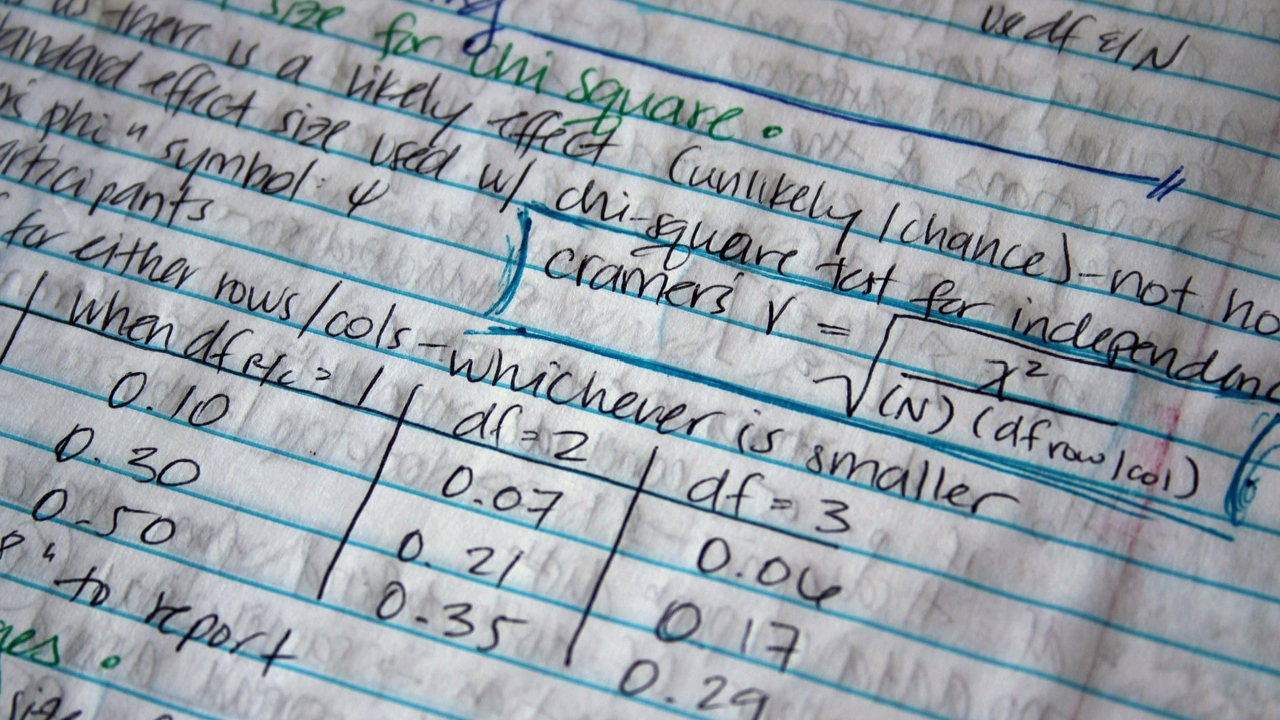 use df &/N
size for chi square.
there is a likely effect (unlikely / chance) - not
standard effect size used w/ chi-square test for independen
phi" symbol: ψ
articipants
cramers V = √ χ² / (N) (df row/col)
for either rows/cols - whichever is smaller
when df R/C = 1 | df = 2 | df = 3
0.10 | 0.07 | 0.06
0.30 | 0.21 | 0.17
0.50 | 0.35 | 0.29
" to report